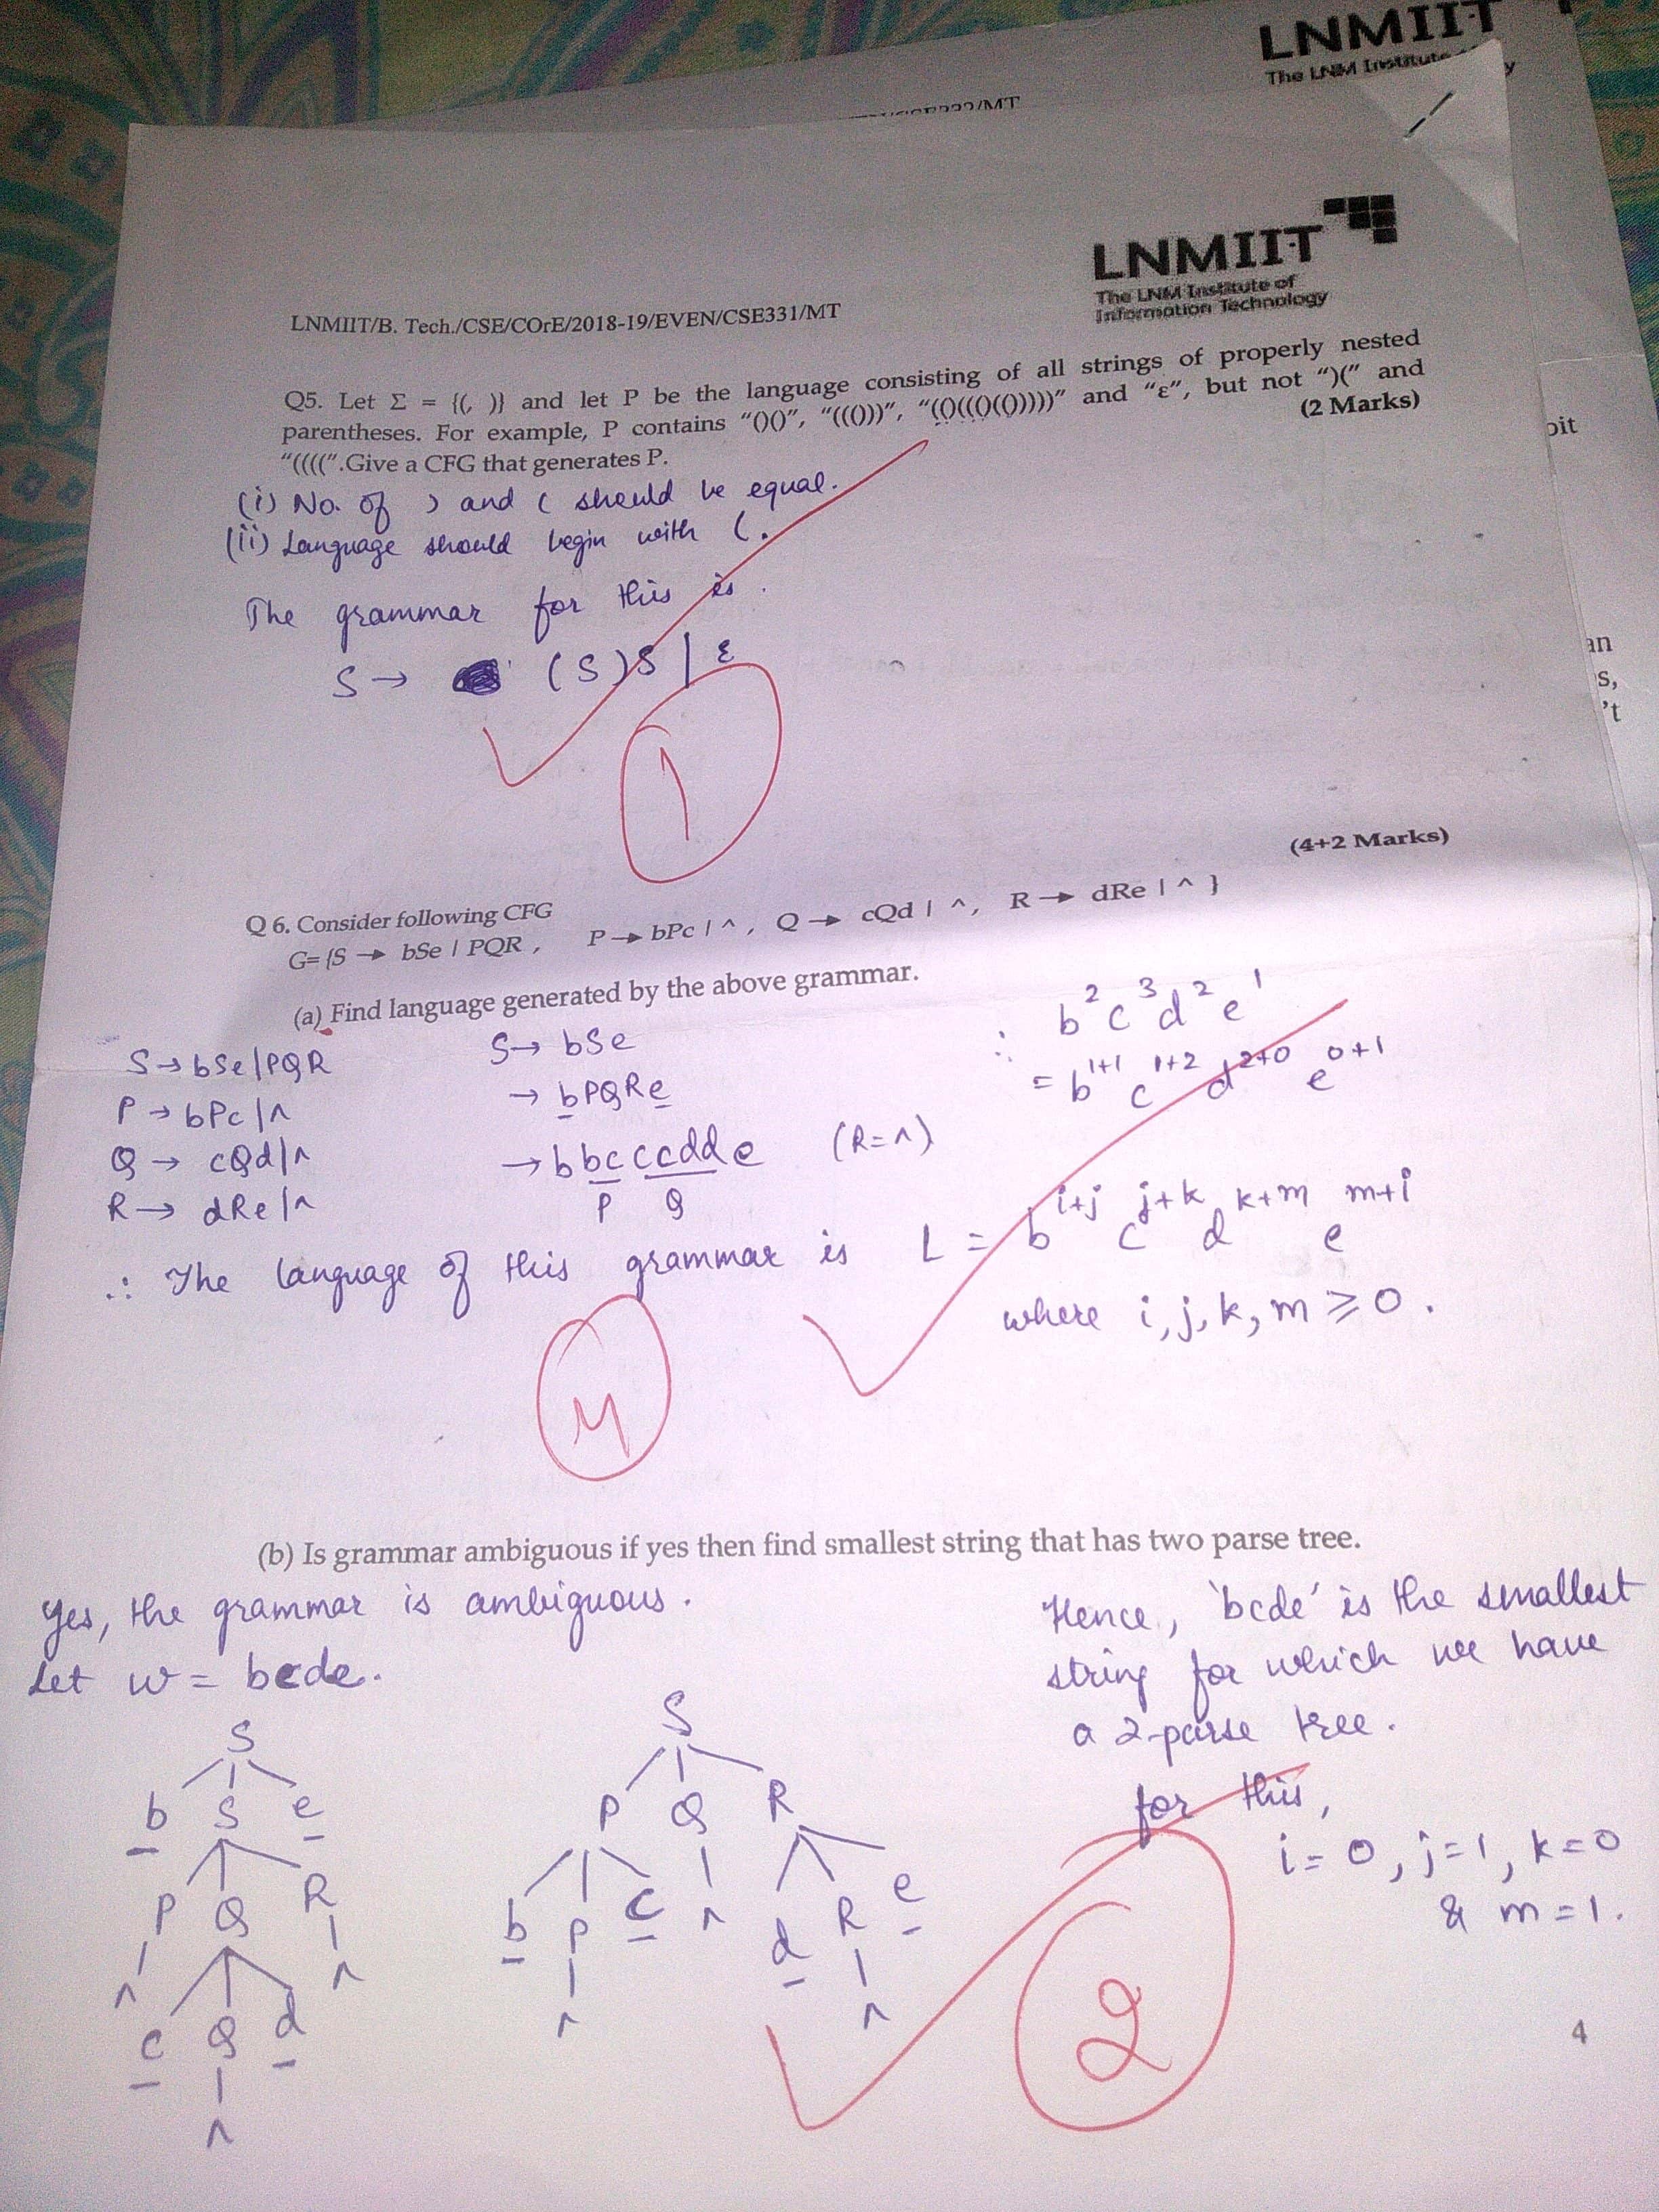 LNMIIT
The LNM Institute
y
/CSE332/MT
LNMIIT
The LNM Institute of
Information Technology
LNMIIT/B. Tech./CSE/COrE/2018-19/EVEN/CSE331/MT
Q5. Let Σ = {(, )} and let P be the language consisting of all strings of properly nested
parentheses. For example, P contains “()()”, “((()))”, “(()((()(()))))” and “ε”, but not “)(” and
“((((”.Give a CFG that generates P.
(2 Marks)
(i) No. of ) and ( should be equal.
(ii) Language should begin with (.
The grammar for this is.
S → (S)S | ε
1
oit
an
s,
't
(4+2 Marks)
Q 6. Consider following CFG
G= {S → bSe | PQR , P → bPc | ^ , Q → cQd | ^, R → dRe | ^ }
(a) Find language generated by the above grammar.
S → bSe|PQR
P → bPc|^
Q → cQd|^
R → dRe|^
S → bSe
→ bPQRe
→ bbcccdde (R=^)
P Q
∴ b² c³ d² e¹
= b¹⁺¹ c¹⁺² d²⁺⁰ e⁰⁺¹
∴ The language of this grammar is L = b^{i+j} c^{j+k} d^{k+m} e^{m+i}
where i, j, k, m ≥ 0.
4
(b) Is grammar ambiguous if yes then find smallest string that has two parse tree.
Yes, the grammar is ambiguous.
Let w = bcde.
S
b S e
P Q R
^ ^
c Q d
^
S
P Q R
b P c ^ d R e
^ ^
Hence, 'bcde' is the smallest
string for which we have
a 2-parse tree.
for this,
i = 0, j=1, k=0
& m=1.
2
4